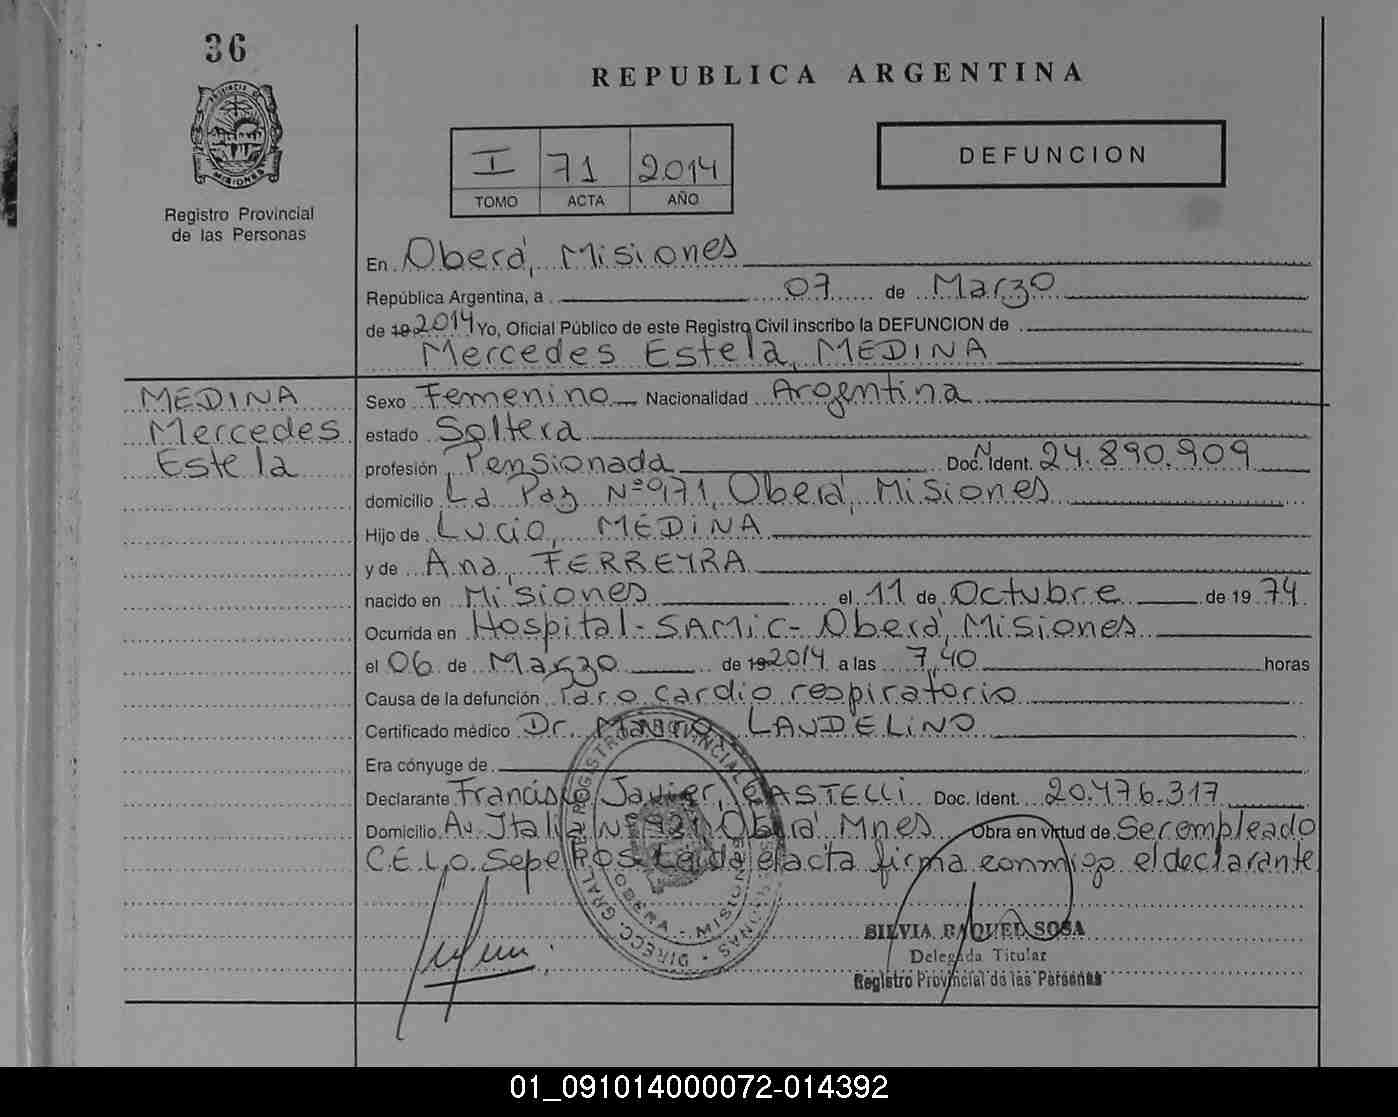 36
REPUBLICA ARGENTINA
PROVINCIA DE
MISIONES
Registro Provincial
de las Personas
I 71 2014
TOMO ACTA AÑO
DEFUNCION
En Oberá, Misiones
República Argentina, a 07 de Marzo
de 19 2014 Yo, Oficial Público de este Registro Civil inscribo la DEFUNCION de
Mercedes Estela, MEDINA
MEDINA
Mercedes
Estela
Sexo Femenino Nacionalidad Argentina
estado Soltera
profesión Pensionada Doc. N Ident. 24.890.909
domicilio La Paz Nº 971, Oberá, Misiones
Hijo de Lucio, MEDINA
y de Ana, FERREYRA
nacido en Misiones el 11 de Octubre de 1974
Ocurrida en Hospital-SAMIC- Oberá, Misiones
el 06 de Marzo de 19 2014 a las 7,40 horas
Causa de la defunción Paro cardio respiratorio
Certificado médico Dr. Mario LAUDELINO
Era cónyuge de
Declarante Francisco Javier, CASTELLI Doc. Ident. 20.476.317
Domicilio Av. Italia Nº 921, Oberá Mnes Obra en virtud de Ser empleado
C.E.L.O. Sepe Pos. Leída el acta firma conmigo el declarante
DIRECC. GRAL. DEL REGISTRO PROVINCIAL DE LAS PERSONAS
MISIONES
SILVIA RAQUEL SOSA
Delegada Titular
Registro Provincial de las Personas
01_091014000072-014392